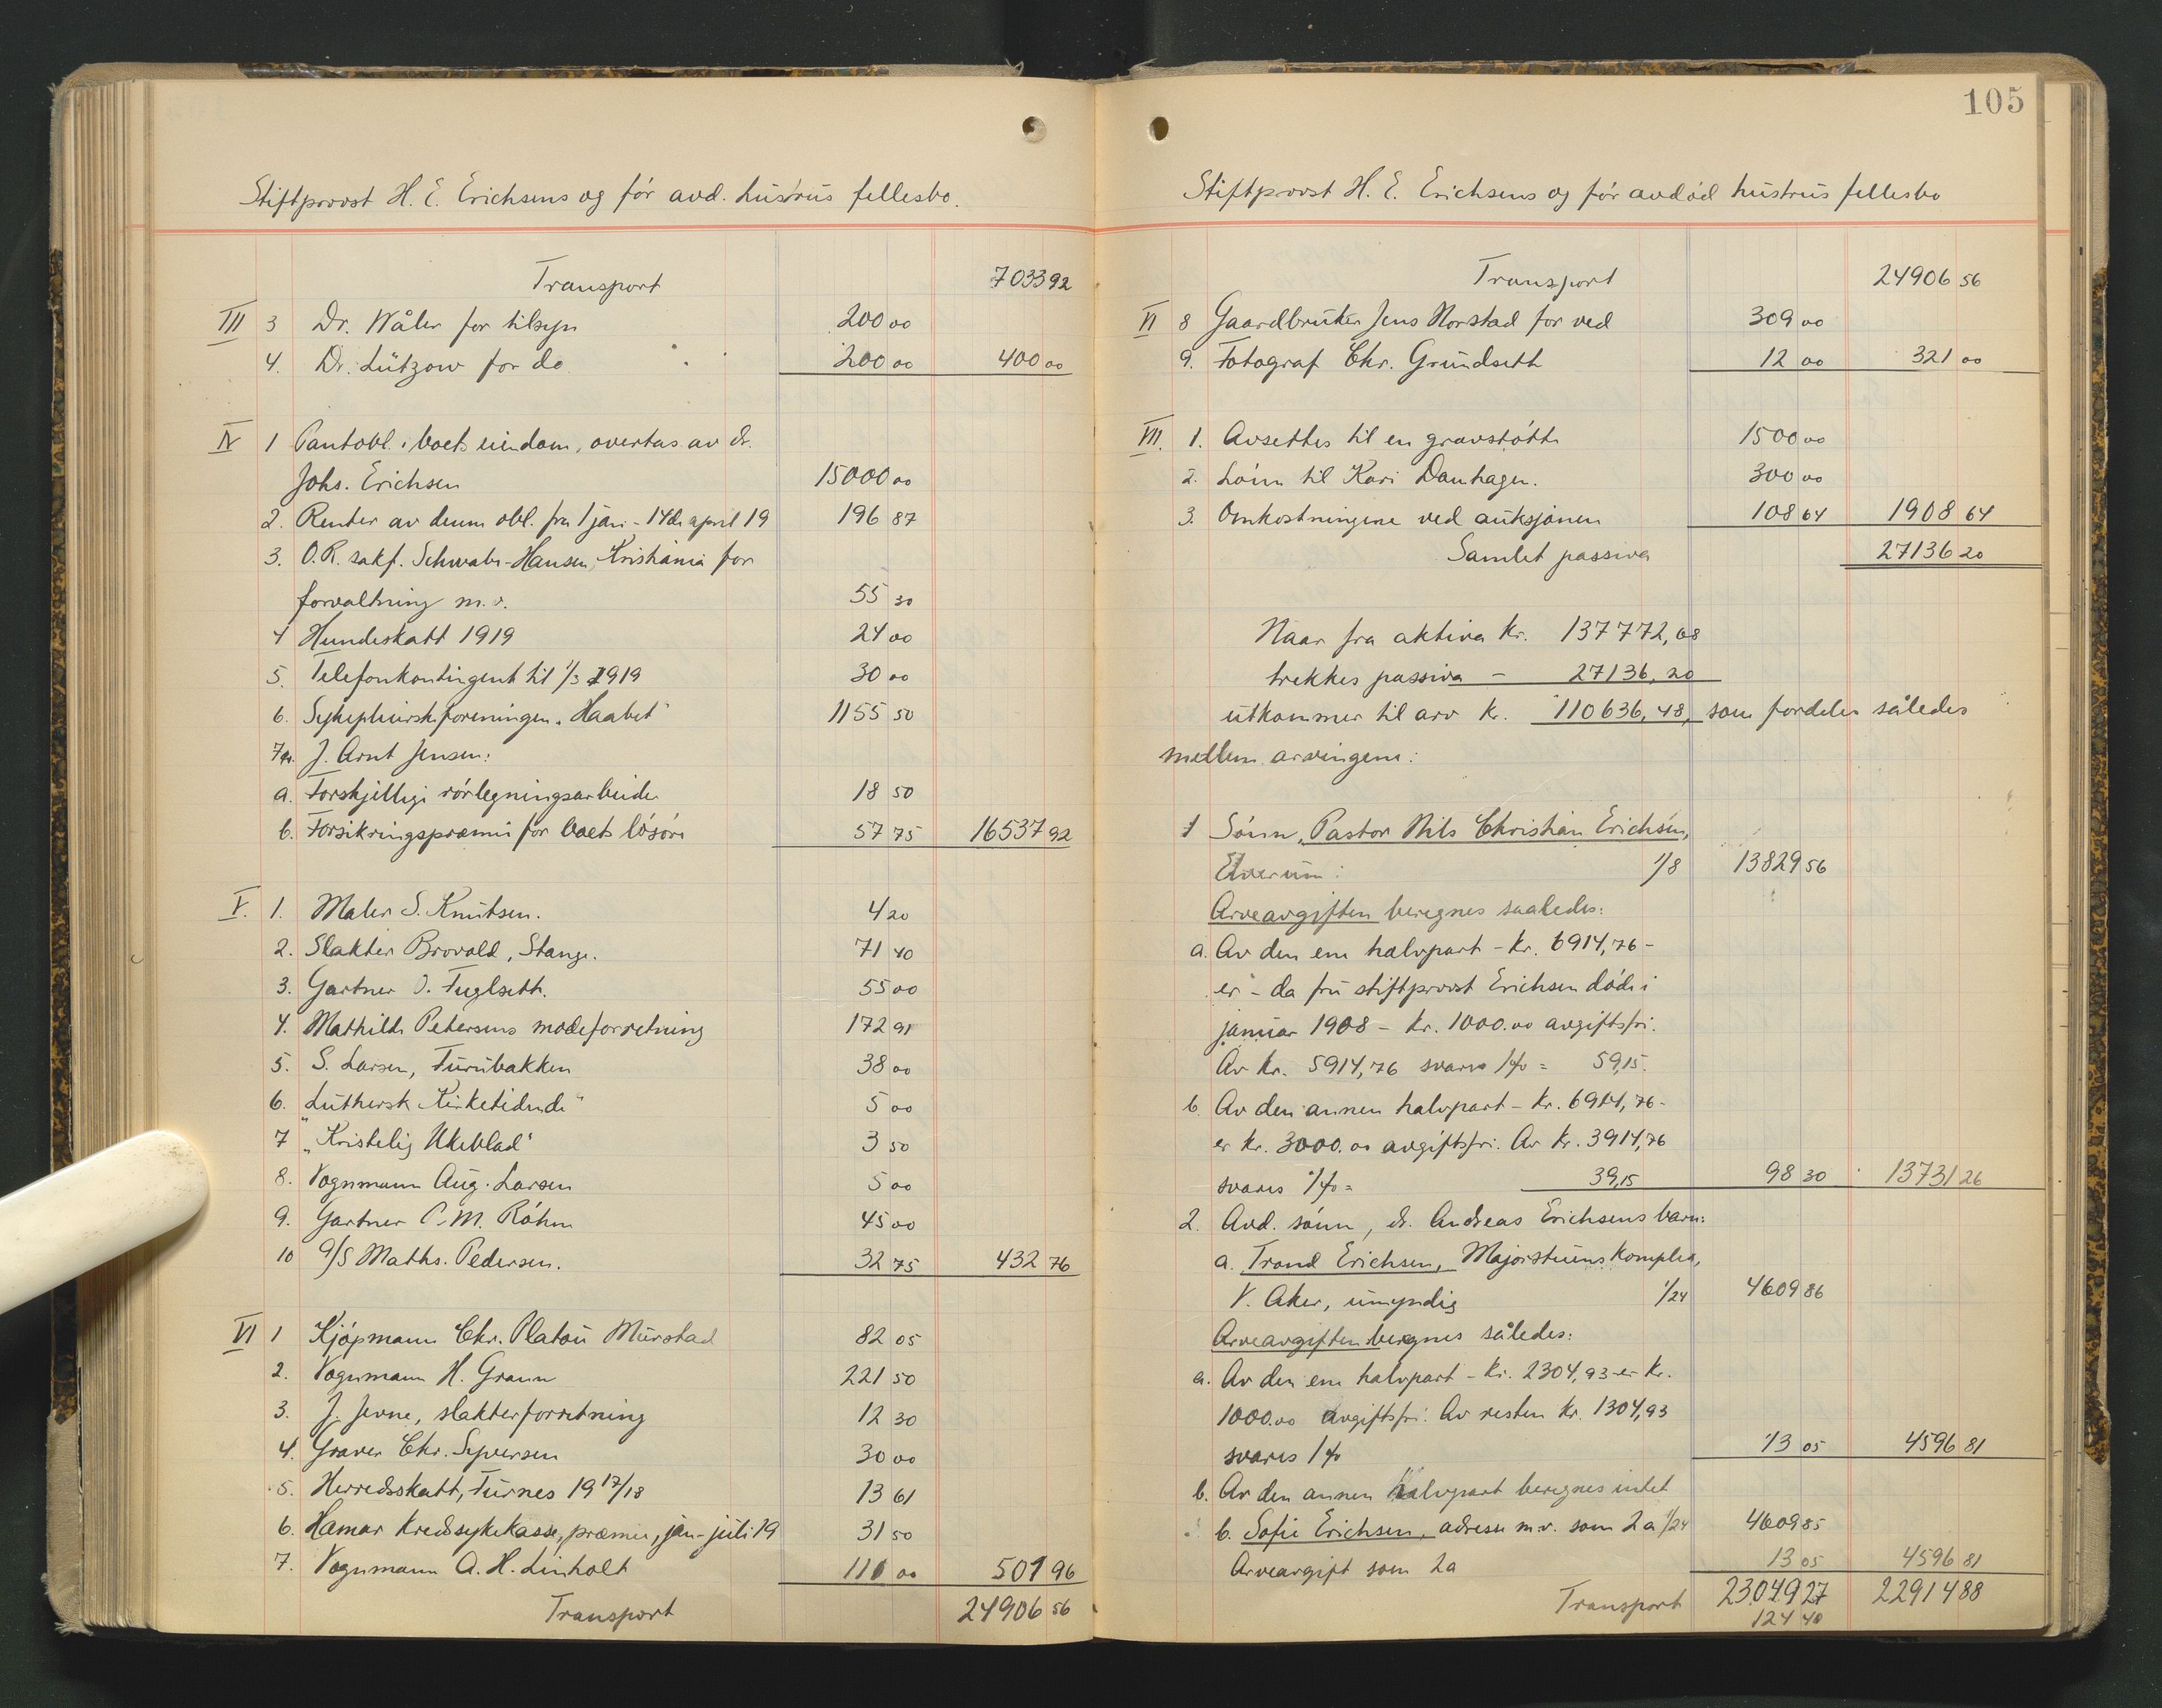 Stiftprovst H. E. Erichsens og før avd. hustrus fellesbo.
Transport 7033 92
III 3 Dr. Wåler for tilsyn 200 00
4. Dr. Lützow for do. 200 00 400 00
IV 1 Pantobl. i boets eiendom, overtas av dr.
Johs. Erichsen 15000 00
2. Renter av denne obl. fra 1 jan. - 14de april 19 196 87
3. O.R. sakf. Schwabe-Hansen, Kristiania for
forvaltning m.v. 55 30
4 Hundeskatt 1919 24 00
5. Telefonkontingent til 1/3 1919 30 00
6. Sykepleierskeforeningen "Haabet" 1155 50
7 J. Arnt Jensen:
a. Forskjellige rørlegningsarbeider 18 50
b. Forsikringspræmie for boets løsøre 57 75 16537 92
V. 1. Maler S. Knutsen. 4 20
2. Slakter Brovold, Stange. 71 40
3. Gartner O. Fuglseth. 55 00
4. Mathilde Petersens modeforretning 172 91
5. S. Larsen, Furubakken 38 00
6. Luthersk Kirketidende" 5 00
7 "Kristelig Ukeblad" 3 50
8. Vognmann Aug. Larsen 5 00
9. Gartner C. M. Röhm 45 00
10 A/S Maths. Pedersen. 32 75 432 76
VI 1 Kjøpmann Chr. Platou Murstad 82 05
2. Vognmann H. Graun 221 50
3. J. Jevne, slakterforretning 12 30
4. Graver Chr. Syversen 30 00
5. Herredsskatt, Furnes 19 17/18 13 61
6. Hamar Kredssykekasse, præmie, jan-juli 19 31 50
7. Vognmann A. H. Linholt 111 00 501 96
Transport 24906 56
105
Stiftprovst H. E. Erichsens og før avdød hustrus fellesbo
Transport 24906 56
VI 8 Gaardbruker Jens Norstad for ved 309 00
9. Fotograf Chr. Grundseth 12 00 321 00
VII. 1. Avsettes til en gravstøtte 1500 00
2. Lønn til Kari Danhagen. 300 00
3. Omkostningene ved auksjonen 108 64 1908 64
Samlet passiva 27136 20
Naar fra aktiva kr. 137772,68
trekkes passiva - 27136,20
utkommer til arv kr. 110636,48, som fordeles således
mellem arvingene:
1 Sønn, Pastor Nils Christian Erichsen,
Elverum: 1/8 13829 56
Arveavgiften beregnes saaledes:
a. Av den ene halvpart - kr. 6914,76 -
er - da fru stiftprovst Erichsen døde i
januar 1908 - kr. 1000.00 avgiftsfri.
Av kr. 5914,76 svares 1% = 59,15.
b. Av den annen halvpart - kr. 6914,76 -
er kr. 3000.00 avgiftsfri. Av kr. 3914,76
svares 1% = 39,15 98 30 13731 26
2. Avd. sønn, dr. Andreas Erichsens barn:
a. Trond Erichsen, Majorstuens kompleks,
V. Aker, umyndig 1/24 4609 86
Arveavgiften beregnes således:
a. Av den ene halvpart - kr. 2304,93 - er kr.
1000.00 avgiftsfri. Av resten kr. 1304,93
svares 1% 13 05 4596 81
b. Av den annen halvpart beregnes intet
b. Sofie Erichsen, adresse m.v. som 2a 1/24 4609 85
Arveavgift som 2a 13 05 4596 81
Transport 23049 27 22914 88
124 40